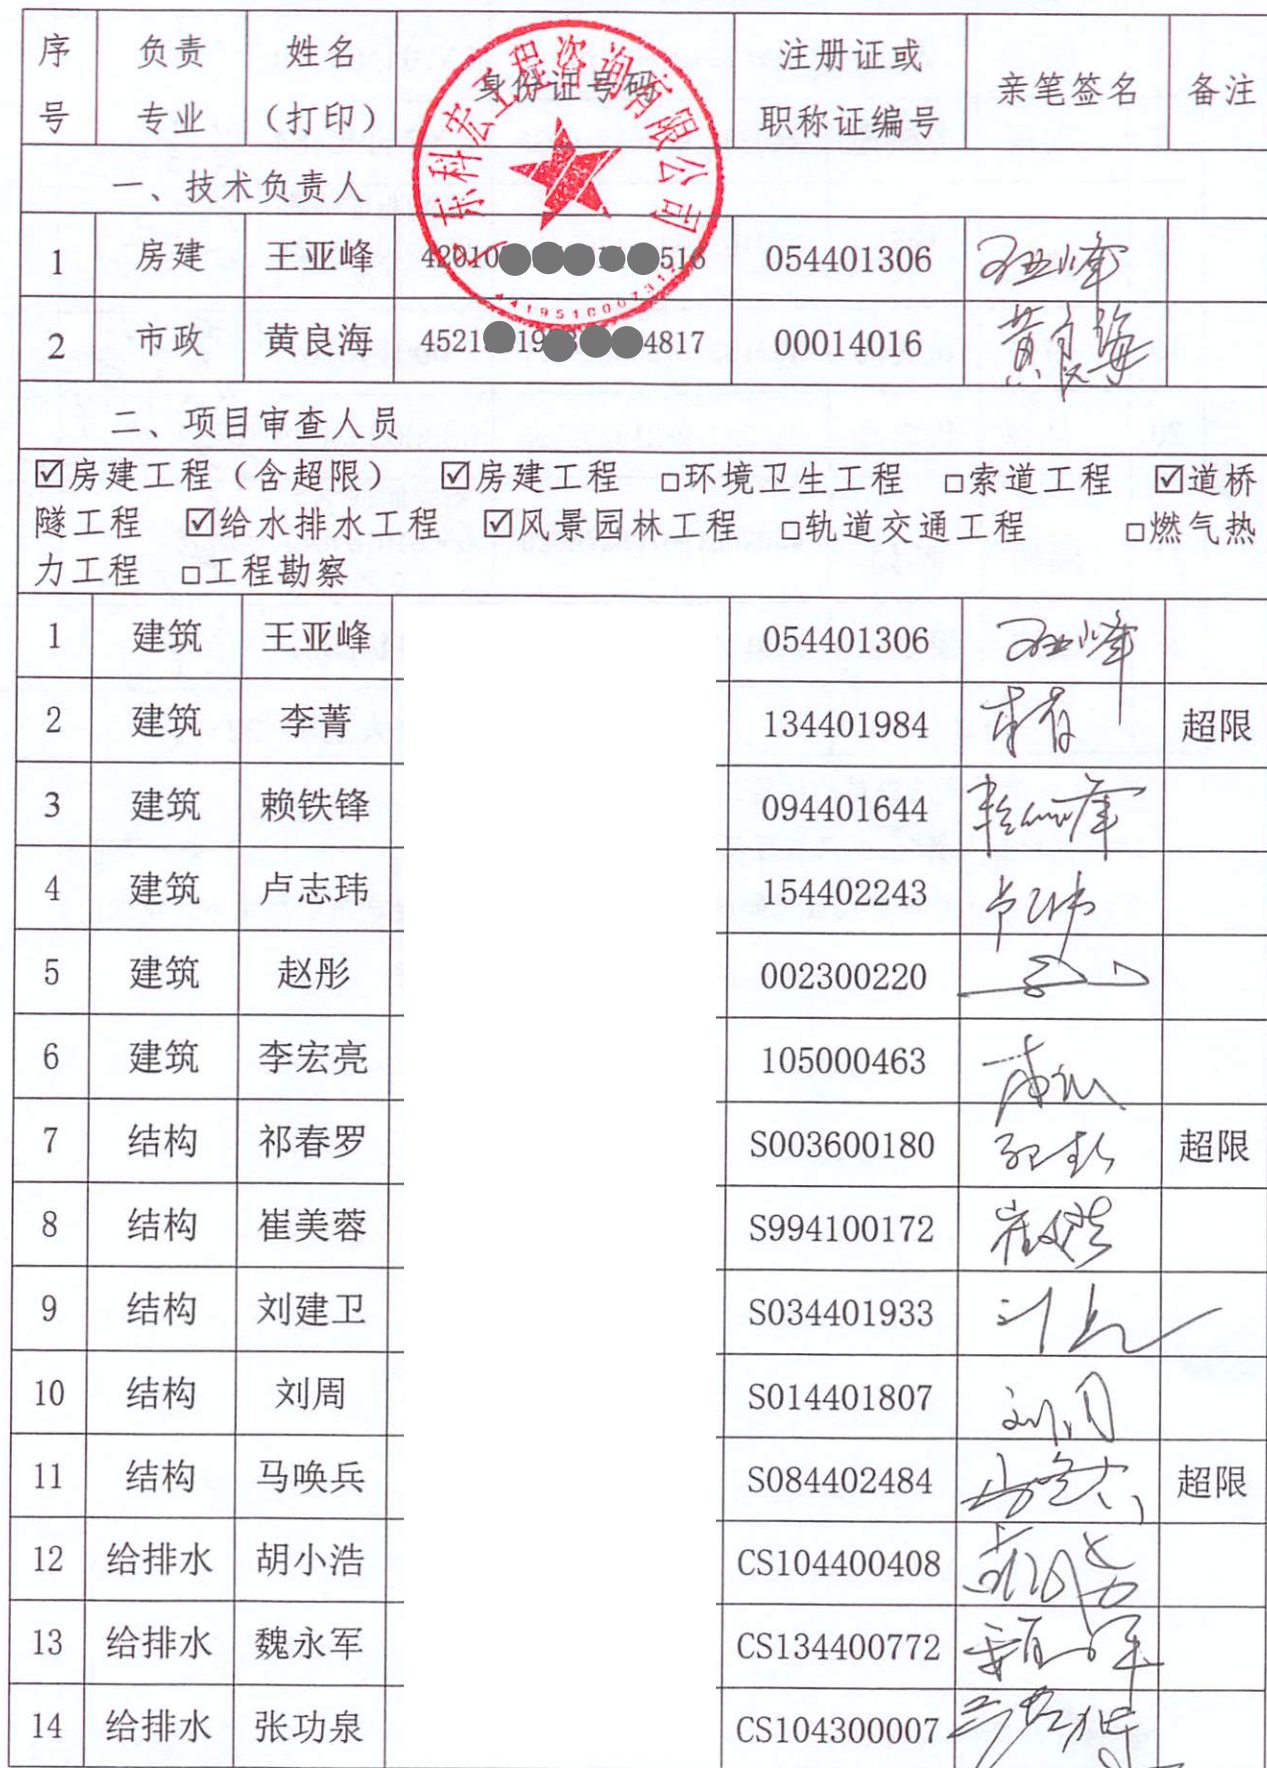 序号 负责专业 姓名（打印） 身份证号码 注册证或职称证编号 亲笔签名 备注
广东科宏工程咨询有限公司
一、技术负责人
1 房建 王亚峰 054401306 王亚峰
2 市政 黄良海 4817 00014016 黄良海
二、项目审查人员
☑房建工程（含超限） ☑房建工程 □环境卫生工程 □索道工程 ☑道桥
隧工程 ☑给水排水工程 ☑风景园林工程 □轨道交通工程 □燃气热
力工程 □工程勘察
1 建筑 王亚峰 054401306 王亚峰
2 建筑 李菁 134401984 李菁 超限
3 建筑 赖铁锋 094401644
4 建筑 卢志玮 154402243
5 建筑 赵彤 002300220
6 建筑 李宏亮 105000463
7 结构 祁春罗 S003600180 超限
8 结构 崔美蓉 S994100172
9 结构 刘建卫 S034401933
10 结构 刘周 S014401807 刘周
11 结构 马唤兵 S084402484 超限
12 给排水 胡小浩 CS104400408
13 给排水 魏永军 CS134400772
14 给排水 张功泉 CS104300007